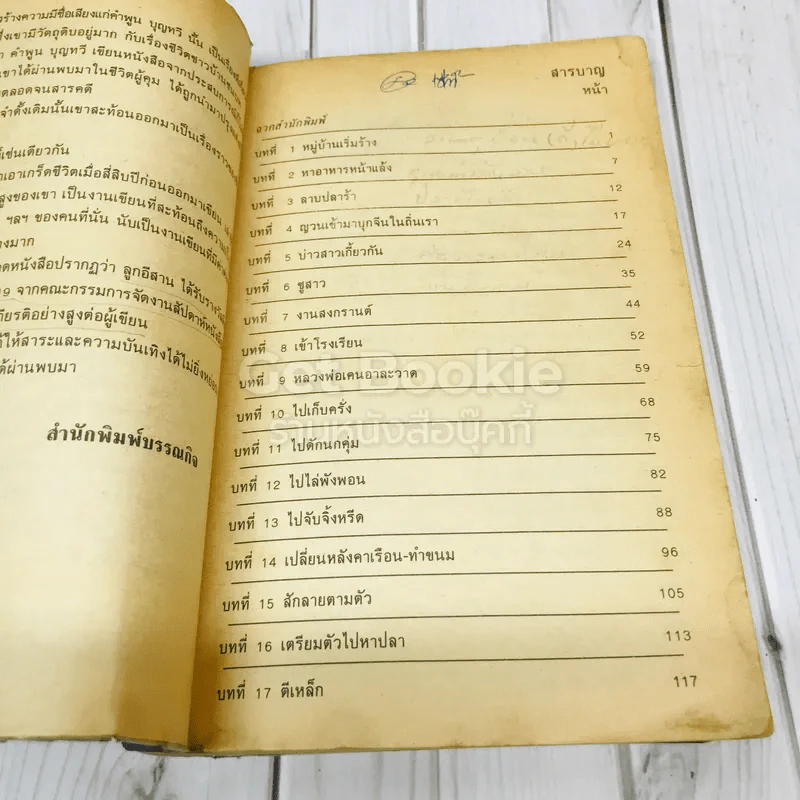 ร้างความมีชื่อเสียงแก่คำพูน บุญทวี นั้น เป็นเรื่อง
ซึ่งเขามีวัตถุดิบอยู่มาก กับเรื่องชีวิตชาวบ้าน
คำพูน บุญทวี เขียนหนังสือจากประสบการณ์
เขาได้ผ่านพบมาในชีวิตผู้คุม ได้ถูกนำมา
ตลอดจนสารคดี
จำดั้งเดิมนั้นเขาสะท้อนออกมาเป็นเรื่องราว
เช่นเดียวกัน
เอาเกร็ดชีวิตเมื่อสี่สิบปีก่อนออกมาเขียน
สูงของเขา เป็นงานเขียนที่สะท้อนถึงความ
ฯลฯ ของคนที่นั่น นับเป็นงานเขียนที่มี
างมาก
ดหนังสือปรากฏว่า ลูกอีสาน ได้รับรางวัล
9 จากคณะกรรมการจัดงานสัปดาห์หนังสือ
กียรติอย่างสูงต่อผู้เขียน
ให้สาระและความบันเทิงได้ไม่ยิ่งหย่อน
ได้ผ่านพบมา
สำนักพิมพ์บรรณกิจ
สารบาญ
หน้า
จากสำนักพิมพ์
บทที่ 1 หมู่บ้านเริ่มร้าง 1
บทที่ 2 หาอาหารหน้าแล้ง 7
บทที่ 3 ลาบปลาร้า 12
บทที่ 4 ญวนเข้ามาบุกจีนในถิ่นเรา 17
บทที่ 5 บ่าวสาวเกี้ยวกัน 24
บทที่ 6 ชูสาว 35
บทที่ 7 งานสงกรานต์ 44
บทที่ 8 เข้าโรงเรียน 52
บทที่ 9 หลวงพ่อเคนอาละวาด 59
บทที่ 10 ไปเก็บครั่ง 68
บทที่ 11 ไปดักนกคุ่ม 75
บทที่ 12 ไปไล่พังพอน 82
บทที่ 13 ไปจับจิ้งหรีด 88
บทที่ 14 เปลี่ยนหลังคาเรือน-ทำขนม 96
บทที่ 15 สักลายตามตัว 105
บทที่ 16 เตรียมตัวไปหาปลา 113
บทที่ 17 ตีเหล็ก 117
Get Bookie
ร้านหนังสือบุ๊คกี้